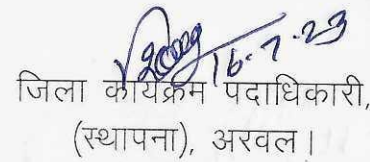 16.7.23
जिला कार्यक्रम पदाधिकारी,
(स्थापना), अरवल।